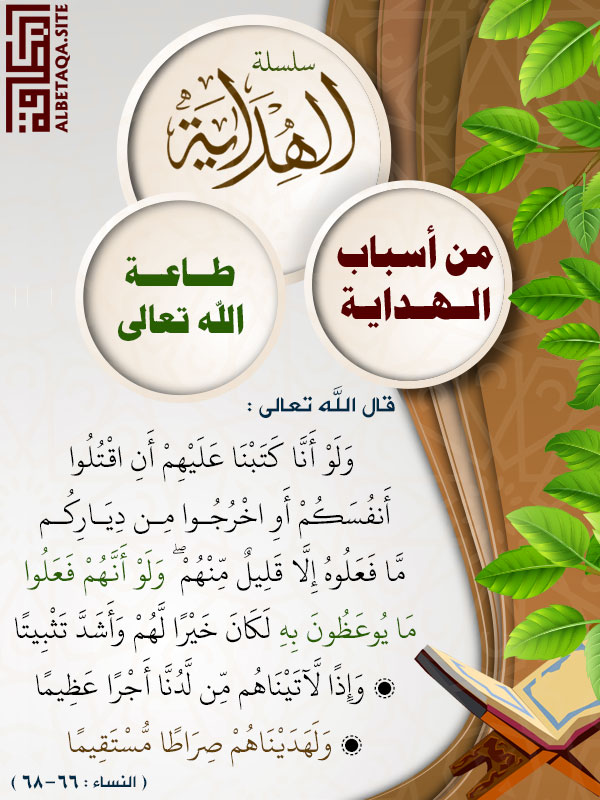 البطاقة
ALBETAQA.SITE
سلسلة
الهداية
من أسباب
الـهـدايـة
طـاعـة
الله تعالى
قال اللَّه تعالى :
وَلَوْ أَنَّا كَتَبْنَا عَلَيْهِمْ أَنِ اقْتُلُوا
أَنفُسَكُمْ أَوِ اخْرُجُـوا مِـن دِيَـارِكُـم
مَّا فَعَلُوهُ إِلَّا قَلِيلٌ مِّنْهُمْ ۖ وَلَوْ أَنَّهُمْ فَعَلُوا
مَا يُوعَظُونَ بِهِ لَكَانَ خَيْرًا لَّهُمْ وَأَشَدَّ تَثْبِيتًا
۞ وَإِذًا لَّآتَيْنَاهُم مِّن لَّدُنَّا أَجْرًا عَظِيمًا
۞ وَلَهَدَيْنَاهُمْ صِرَاطًا مُّسْتَقِيمًا
( النساء : ٦٦-٦٨ )